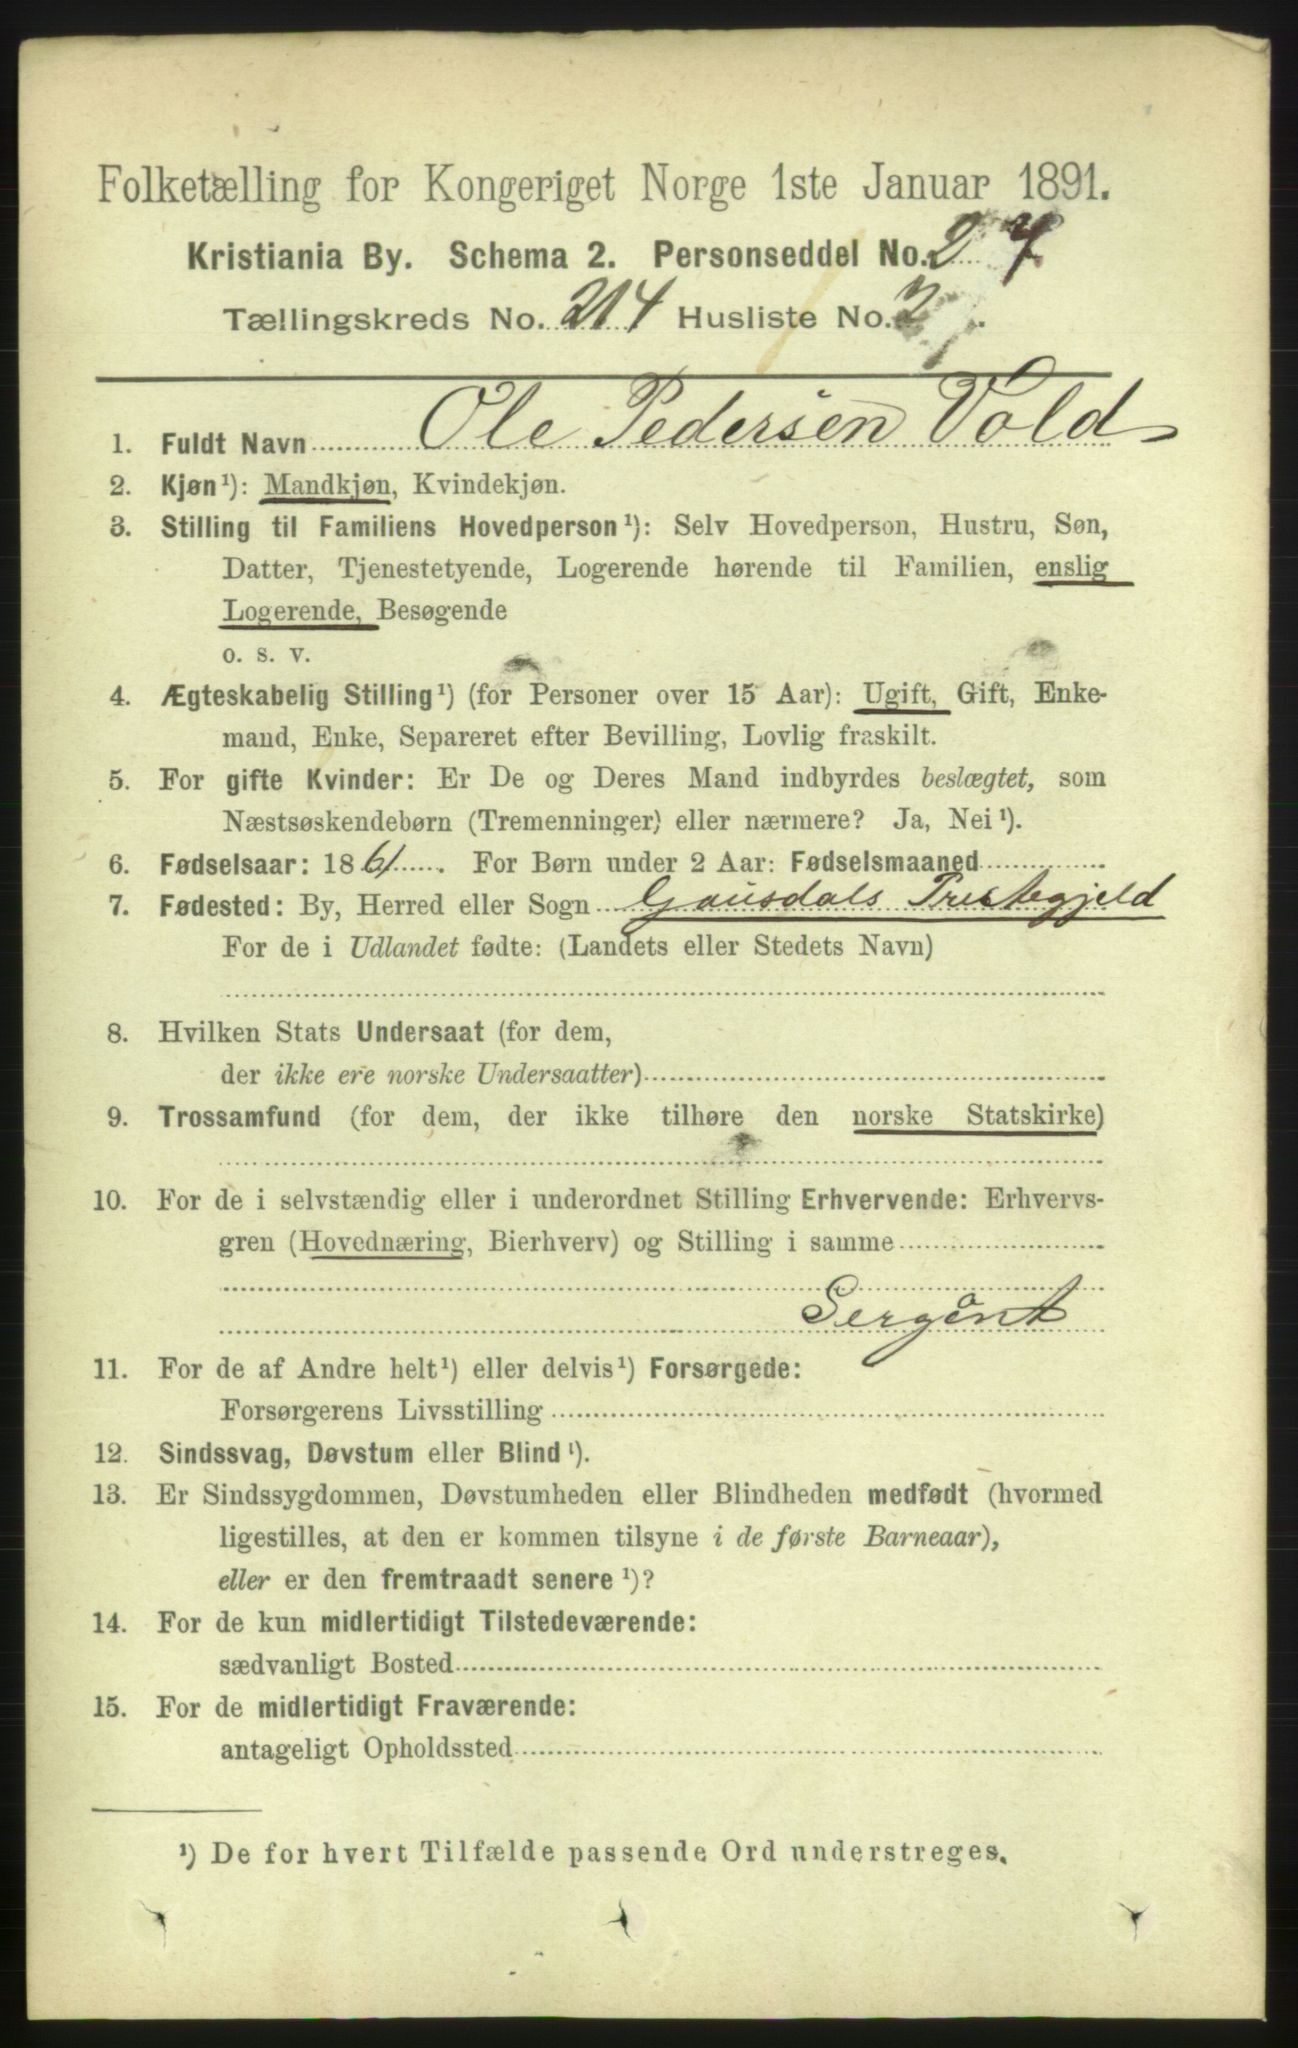 Folketælling for Kongeriget Norge 1ste Januar 1891.
Kristiania By. Schema 2. Personseddel No. 27
Tællingskreds No. 214 Husliste No. 2.
1. Fuldt Navn Ole Pedersen Vold
2. Kjøn¹): Mandkjøn, Kvindekjøn.
3. Stilling til Familiens Hovedperson¹): Selv Hovedperson, Hustru, Søn,
Datter, Tjenestetyende, Logerende hørende til Familien, enslig
Logerende, Besøgende
o. s. v.
4. Ægteskabelig Stilling¹) (for Personer over 15 Aar): Ugift, Gift, Enke-
mand, Enke, Separeret efter Bevilling, Lovlig fraskilt.
5. For gifte Kvinder: Er De og Deres Mand indbyrdes beslægtet, som
Næstsøskendebørn (Tremenninger) eller nærmere? Ja, Nei¹).
6. Fødselsaar: 1861. For Børn under 2 Aar: Fødselsmaaned
7. Fødested: By, Herred eller Sogn Gausdals Prestegjeld
For de i Udlandet fødte: (Landets eller Stedets Navn)
8. Hvilken Stats Undersaat (for dem,
der ikke ere norske Undersaatter)
9. Trossamfund (for dem, der ikke tilhøre den norske Statskirke)
10. For de i selvstændig eller i underordnet Stilling Erhvervende: Erhvervs-
gren (Hovednæring, Bierhverv) og Stilling i samme
Sergent
11. For de af Andre helt¹) eller delvis¹) Forsørgede:
Forsørgerens Livsstilling
12. Sindssvag, Døvstum eller Blind¹).
13. Er Sindssygdommen, Døvstumheden eller Blindheden medfødt (hvormed
ligestilles, at den er kommen tilsyne i de første Barneaar),
eller er den fremtraadt senere¹)?
14. For de kun midlertidigt Tilstedeværende:
sædvanligt Bosted
15. For de midlertidigt Fraværende:
antageligt Opholdssted
¹) De for hvert Tilfælde passende Ord understreges.